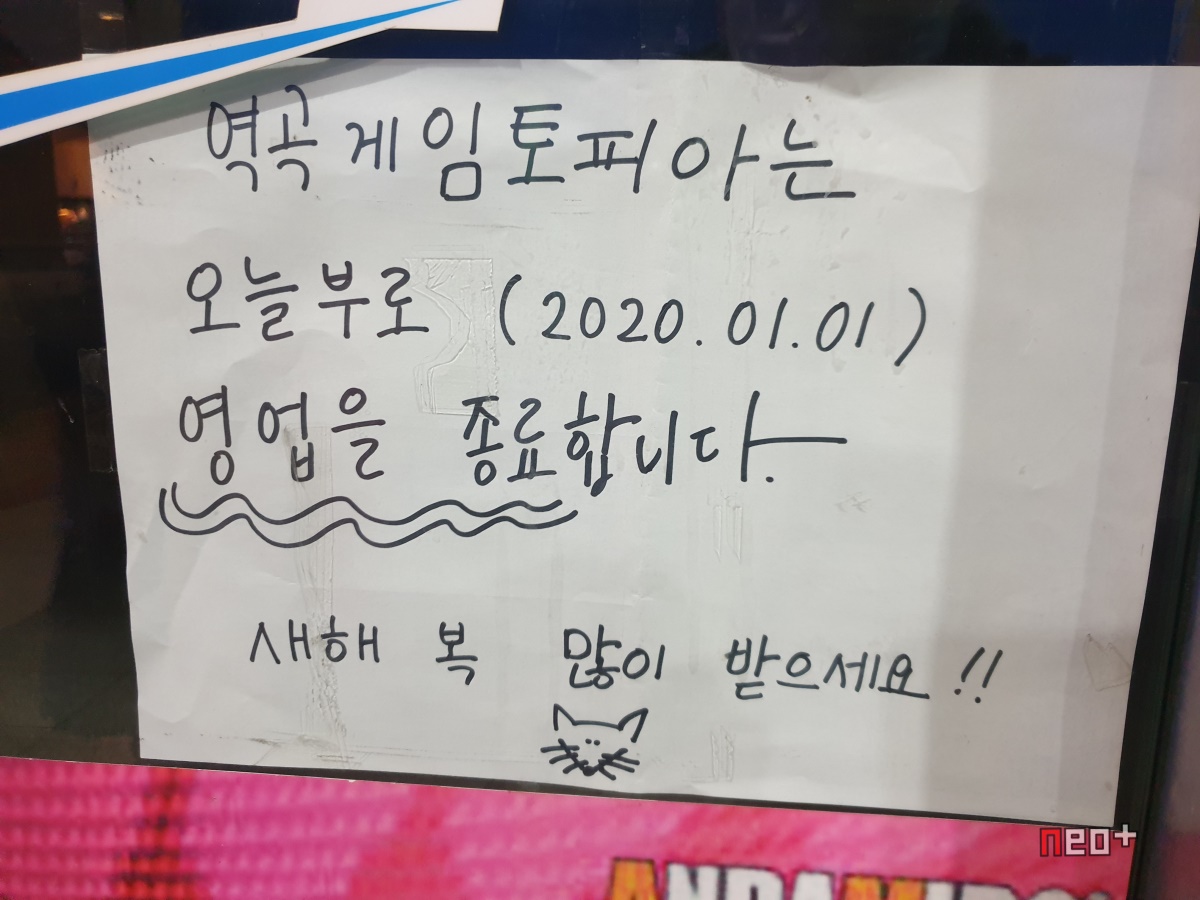 역곡 게임토피아는
오늘부로 (2020.01.01)
영업을 종료합니다.
새해 복 많이 받으세요!!
neo+